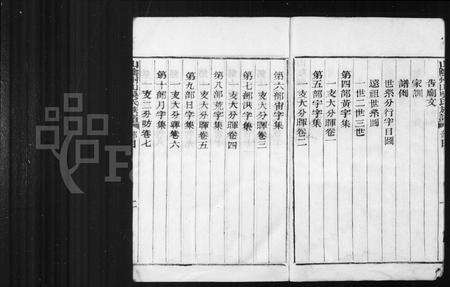 告廟文
家訓
譜例
世系分行字目圖
遠祖世系圖
一世二世三世
第四部黃字集
一支大分暉卷一
第五部宇字集
一支大分暉卷二
第六部宙字集
一支大分暉卷三
第七部洪字集
一支大分暉卷四
第八部荒字集
一支大分暉卷五
第九部日字集
一支大分暉卷六
第十部月字集
一支二分昉卷七